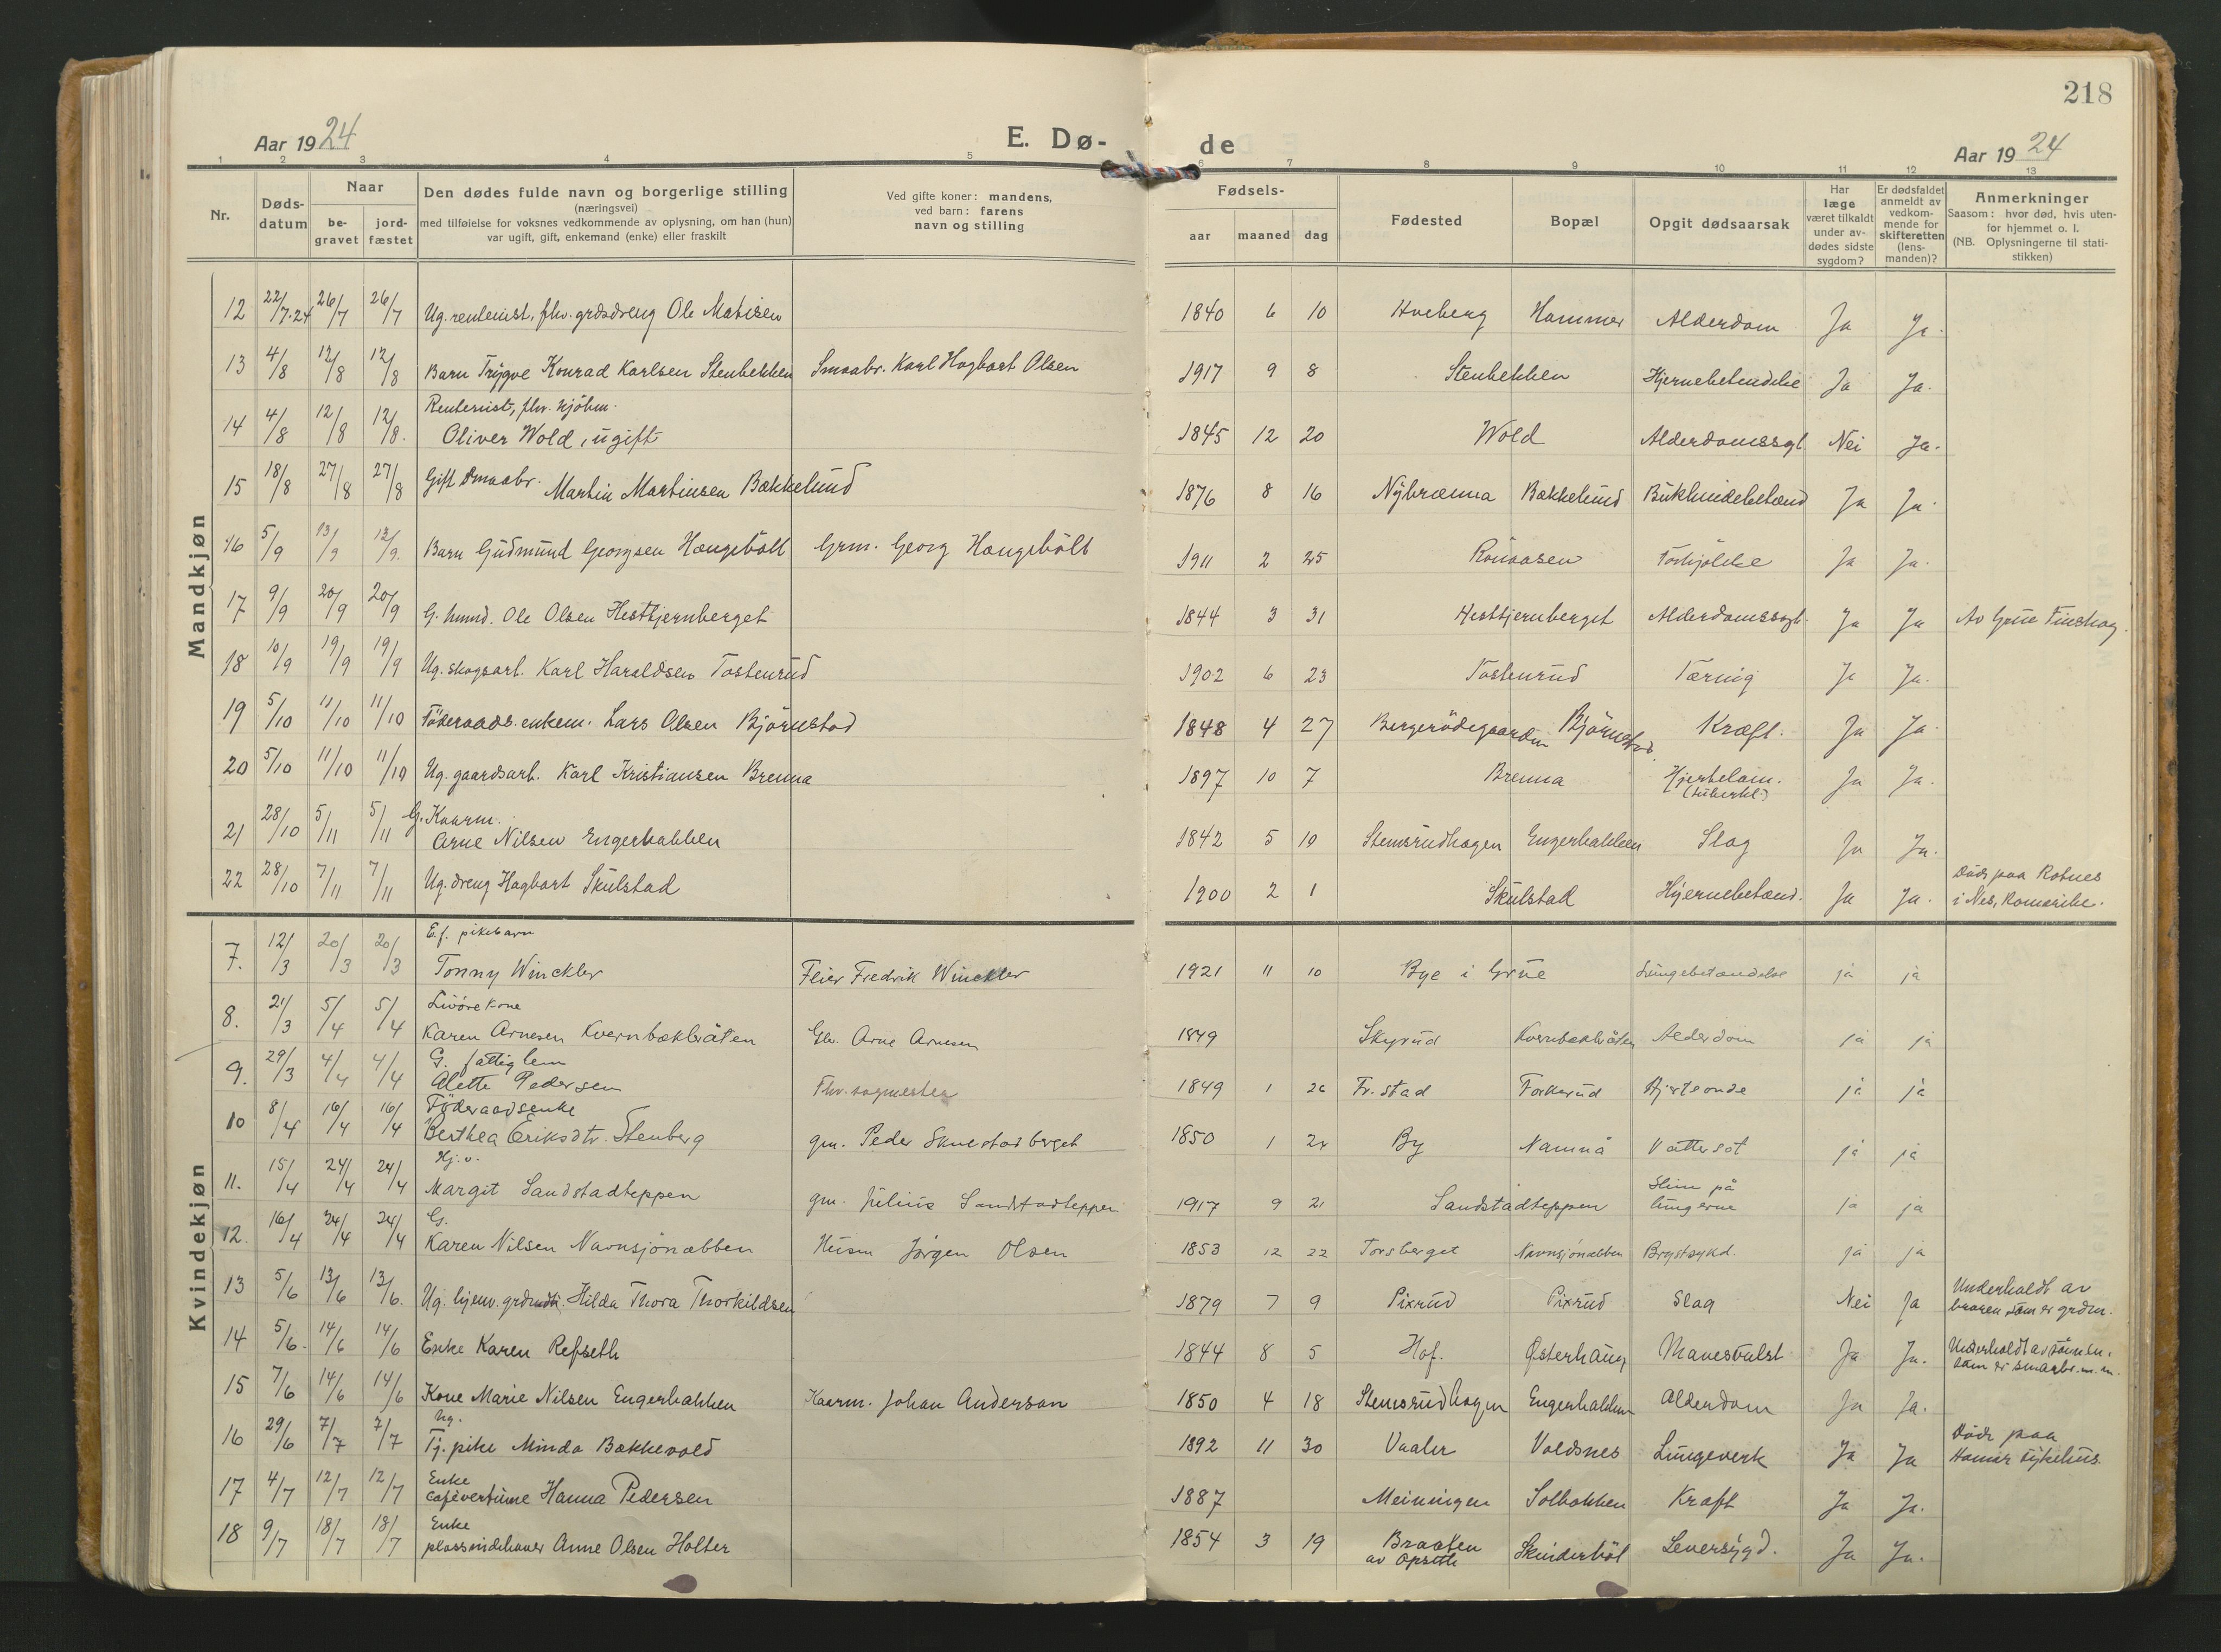 218
Aar 1924 E. Dø- de Aar 1924
1 2 3 4 5 6 7 8 9 10 11 12 13
Nr.
Døds-
datum
Naar
be-
gravet
jord-
fæstet
Den dødes fulde navn og borgerlige stilling
(næringsvei)
med tilføielse for voksnes vedkommende av oplysning, om han (hun)
var ugift, gift, enkemand (enke) eller fraskilt
Ved gifte koner: mandens,
ved barn: farens
navn og stilling
Fødsels-
aar maaned dag
Fødested
Bopæl
Opgit dødsaarsak
Har
læge
været tilkaldt
under av-
dødes sidste
sygdom?
Er dødsfaldet
anmeldt av
vedkom-
mende for
skifteretten
(lens-
manden)?
Anmerkninger
Saasom: hvor død, hvis uten-
for hjemmet o. l.
(NB. Oplysningerne til stati-
stikken)
Mandkjøn
12 22/7.24 26/7 26/7 Ug. rentenist, fhv. grdsdreng Ole Matisen 1840 6 10 Hveberg Hammer Alderdom Ja Ja.
13 4/8 12/8 12/8 Barn Trygve Konrad Karlsen Stenbekken Smaabr. Karl Hagbart Olsen 1917 9 8 Stenbekken Hjernebetendelse Ja Ja.
Rentenist, fhv. kjöbm.
14 4/8 12/8 12/8. Oliver Wold, ugift 1845 12 20 Wold Alderdomssvgl. Nei Ja.
15 18/8 27/8 27/8 Gift Smaabr. Martin Martinsen Bækkelund 1876 8 16 Nybrænna Bækkelund Bukhindebetænd Ja Ja.
16 5/9 13/9 13/9. Barn Gudmund Georgsen Haugeholt Grm. Georg Haugeholt 1911 2 25 Rönaasen Ja Ja.
17 9/9 20/9 20/9 G. husmd. Ole Olsen Hesttjernberget 1844 3 31 Hesttjernberget Alderdomssvgh. Ja Ja Av Grue Finskog.
18 10/9 19/9 19/9 Ug. skogsarb. Karl Haraldsen Tostenrud 1902 6 23 Tostenrud Tæring Ja Ja.
19 5/10 11/10 11/10 Föderaads. enkem. Lars Olsen Björnstad 1848 4 27 Bergerödegaarden Björnstad. Kræft. Ja Ja
20 5/10 11/10 11/10 Ug. gaardsarb. Karl Kristiansen Brenna 1897 10 7 Brenna Hjertelam. Ja Ja.
(tuberkl.)
G. Kaarm.
21 28/10 5/11 5/11 Arne Nilsen Engerbakken 1842 5 19 Stemsrudhagen Engerbakken Slag Ja Ja.
22 28/10 7/11 7/11 Ug. dreng Hagbart Skulstad 1900 2 1 Skulstad Hjernebetænd. Ja Ja. Död paa Rotnes
i Nes, Romerike.
Kvindekjøn
E.f. pikebarn
7. 12/3 20/3 20/3 Tonny Winckler Feier Fredrik Winckler 1921 11 10 Bye i Grue Lungebetændelse ja ja
Livöre kone
8. 21/3 5/4 5/4 Karen Arnesen Kvernbækbråten Gbr. Arne Arnesen 1849 Skyrud Kvernbækbråten Alderdom ja ja
G. fattiglem
9. 29/3 4/4 4/4 Alette Pedersen Fhv. sagmester 1849 1 26 Fr. stad Forkerud Hjerteonde ja ja
Föderaadsenke
10 8/4 16/4 16/4 Berthea Eriksdtr. Stenberg gm. Peder Skulstadberget 1850 1 22 By Namnå Vattersot ja ja
Hj. v.
11. 15/4 24/4 24/4 Margit Sandstadteppen gm. Julius Sandstadteppen 1917 9 21 Sandstadteppen Slim på
lungerne ja ja
G.
12. 16/4 24/4 24/4 Karen Nilsen Navnsjönabben Husm Jörgen Olsen 1853 12 22 Torsberget Navnsjönabben Brystsykd. ja ja
13 5/6 13/6 13/6. Ug. hjemv. grdmdt. Hilda Thora Thorkildsen 1879 7 9 Pixrud Pixrud Slag Nei Ja Underholdt av
broren som er grdm.
14 5/6. 14/6 14/6 Enke Karen Refseth 1844 8 5 Hof. Østerhaug Mavesvulst Ja Ja. Underholdt av sönnen,
som er smaabr. m.m.
15 7/6 14/6 14/6 Kone Marie Nilsen Engerbakken Kaarm. Johan Anderson 1850 4 18 Stemsrudhagen Engerbakken Alderdom Ja Ja.
Ug.
16 29/6 7/7 7/7 Tj. pike Minda Bækkevold 1892 11 30 Vaaler Voldsnes Lungeverk Ja Ja Död paa
Hamar sykehus.
Enke
17 4/7 12/7 12/7 Cafévertinne Hanna Pedersen 1887 Meiningen Solbakken Kræft Ja Ja.
Enke
18 9/7 18/7 18/7 plassindehaver Anne Olsen Holter 1854 3 19 Braaten
av Opseth Skinderhöl Leversygd. Ja Ja.